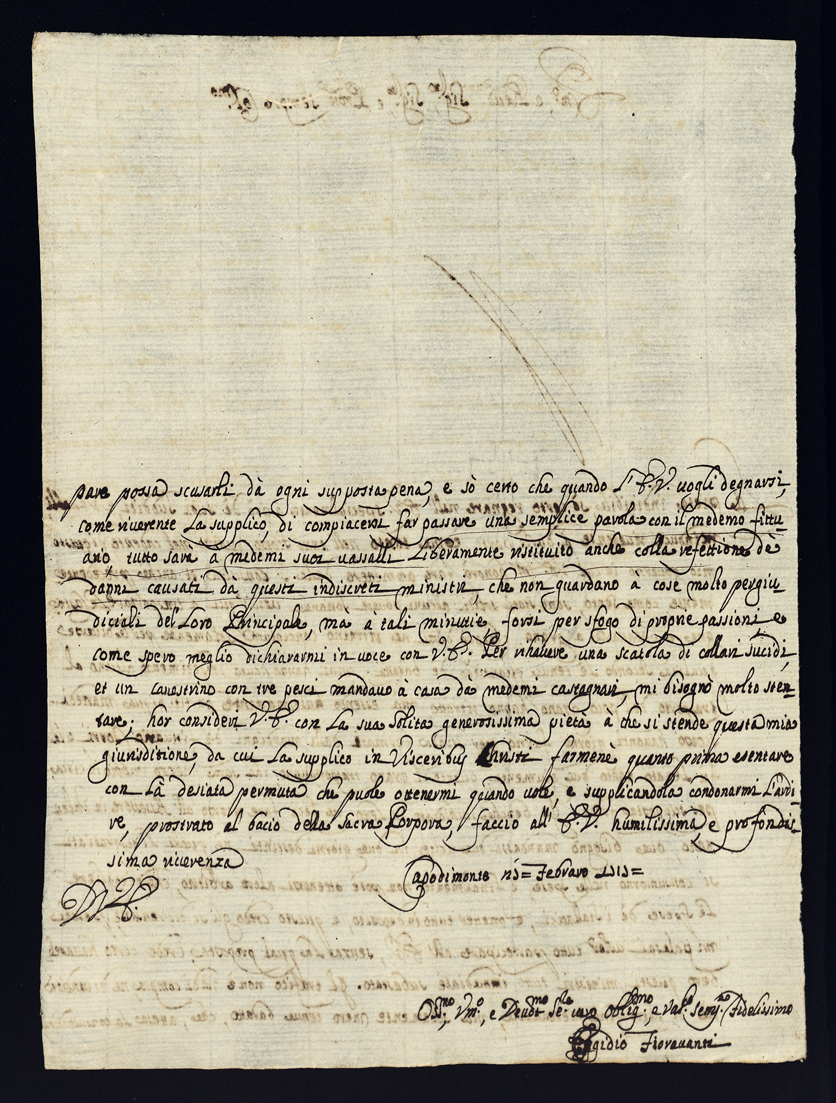 pare possa scusarli dà ogni supposta pena, e sò certo che quando L'E.V. uogli degnarsi,
come riuerente La supplico, di compiacersi far passare una semplice parola con il medemo fittu-
ario tutto sarà a medemi suoi uassalli Liberamente ristituito anche colla refettione dè
danni causati dà questi indiscreti ministri, che non guardano à cose molto pergiu-
diciali del Loro Principale, mà a tali minutie forsi per sfogo di proprie passioni, e
come spero meglio dichiararmi in uoce con V.E. Per rihauere una scatola di collari sucidi,
et un canostrino con tre pesci mandauo à casa dà medemi castagnari, mi bisognò molto sten-
tare; hor consideri V.E. con La sua solita generosissima pietà à che si stende questa mia
giurisditione, da cui La supplico in Visceribus Christi farmene quanto prima esentare
con Là desiata permuta che puole ottenermi quando uole, e supplicandola condonarmi L'ardi-
re, prostrato al bacio della Sacra Porpora faccio all' E.V. humilissima, e profondis-
sima riuerenza
Capodimonte Febraro 1713=
D V.E.
Vm.o, e Deuot.mo Se.re uero Oblig.mo, e Vas.o semp. Fidelissimo
Egidio Fiorauanti